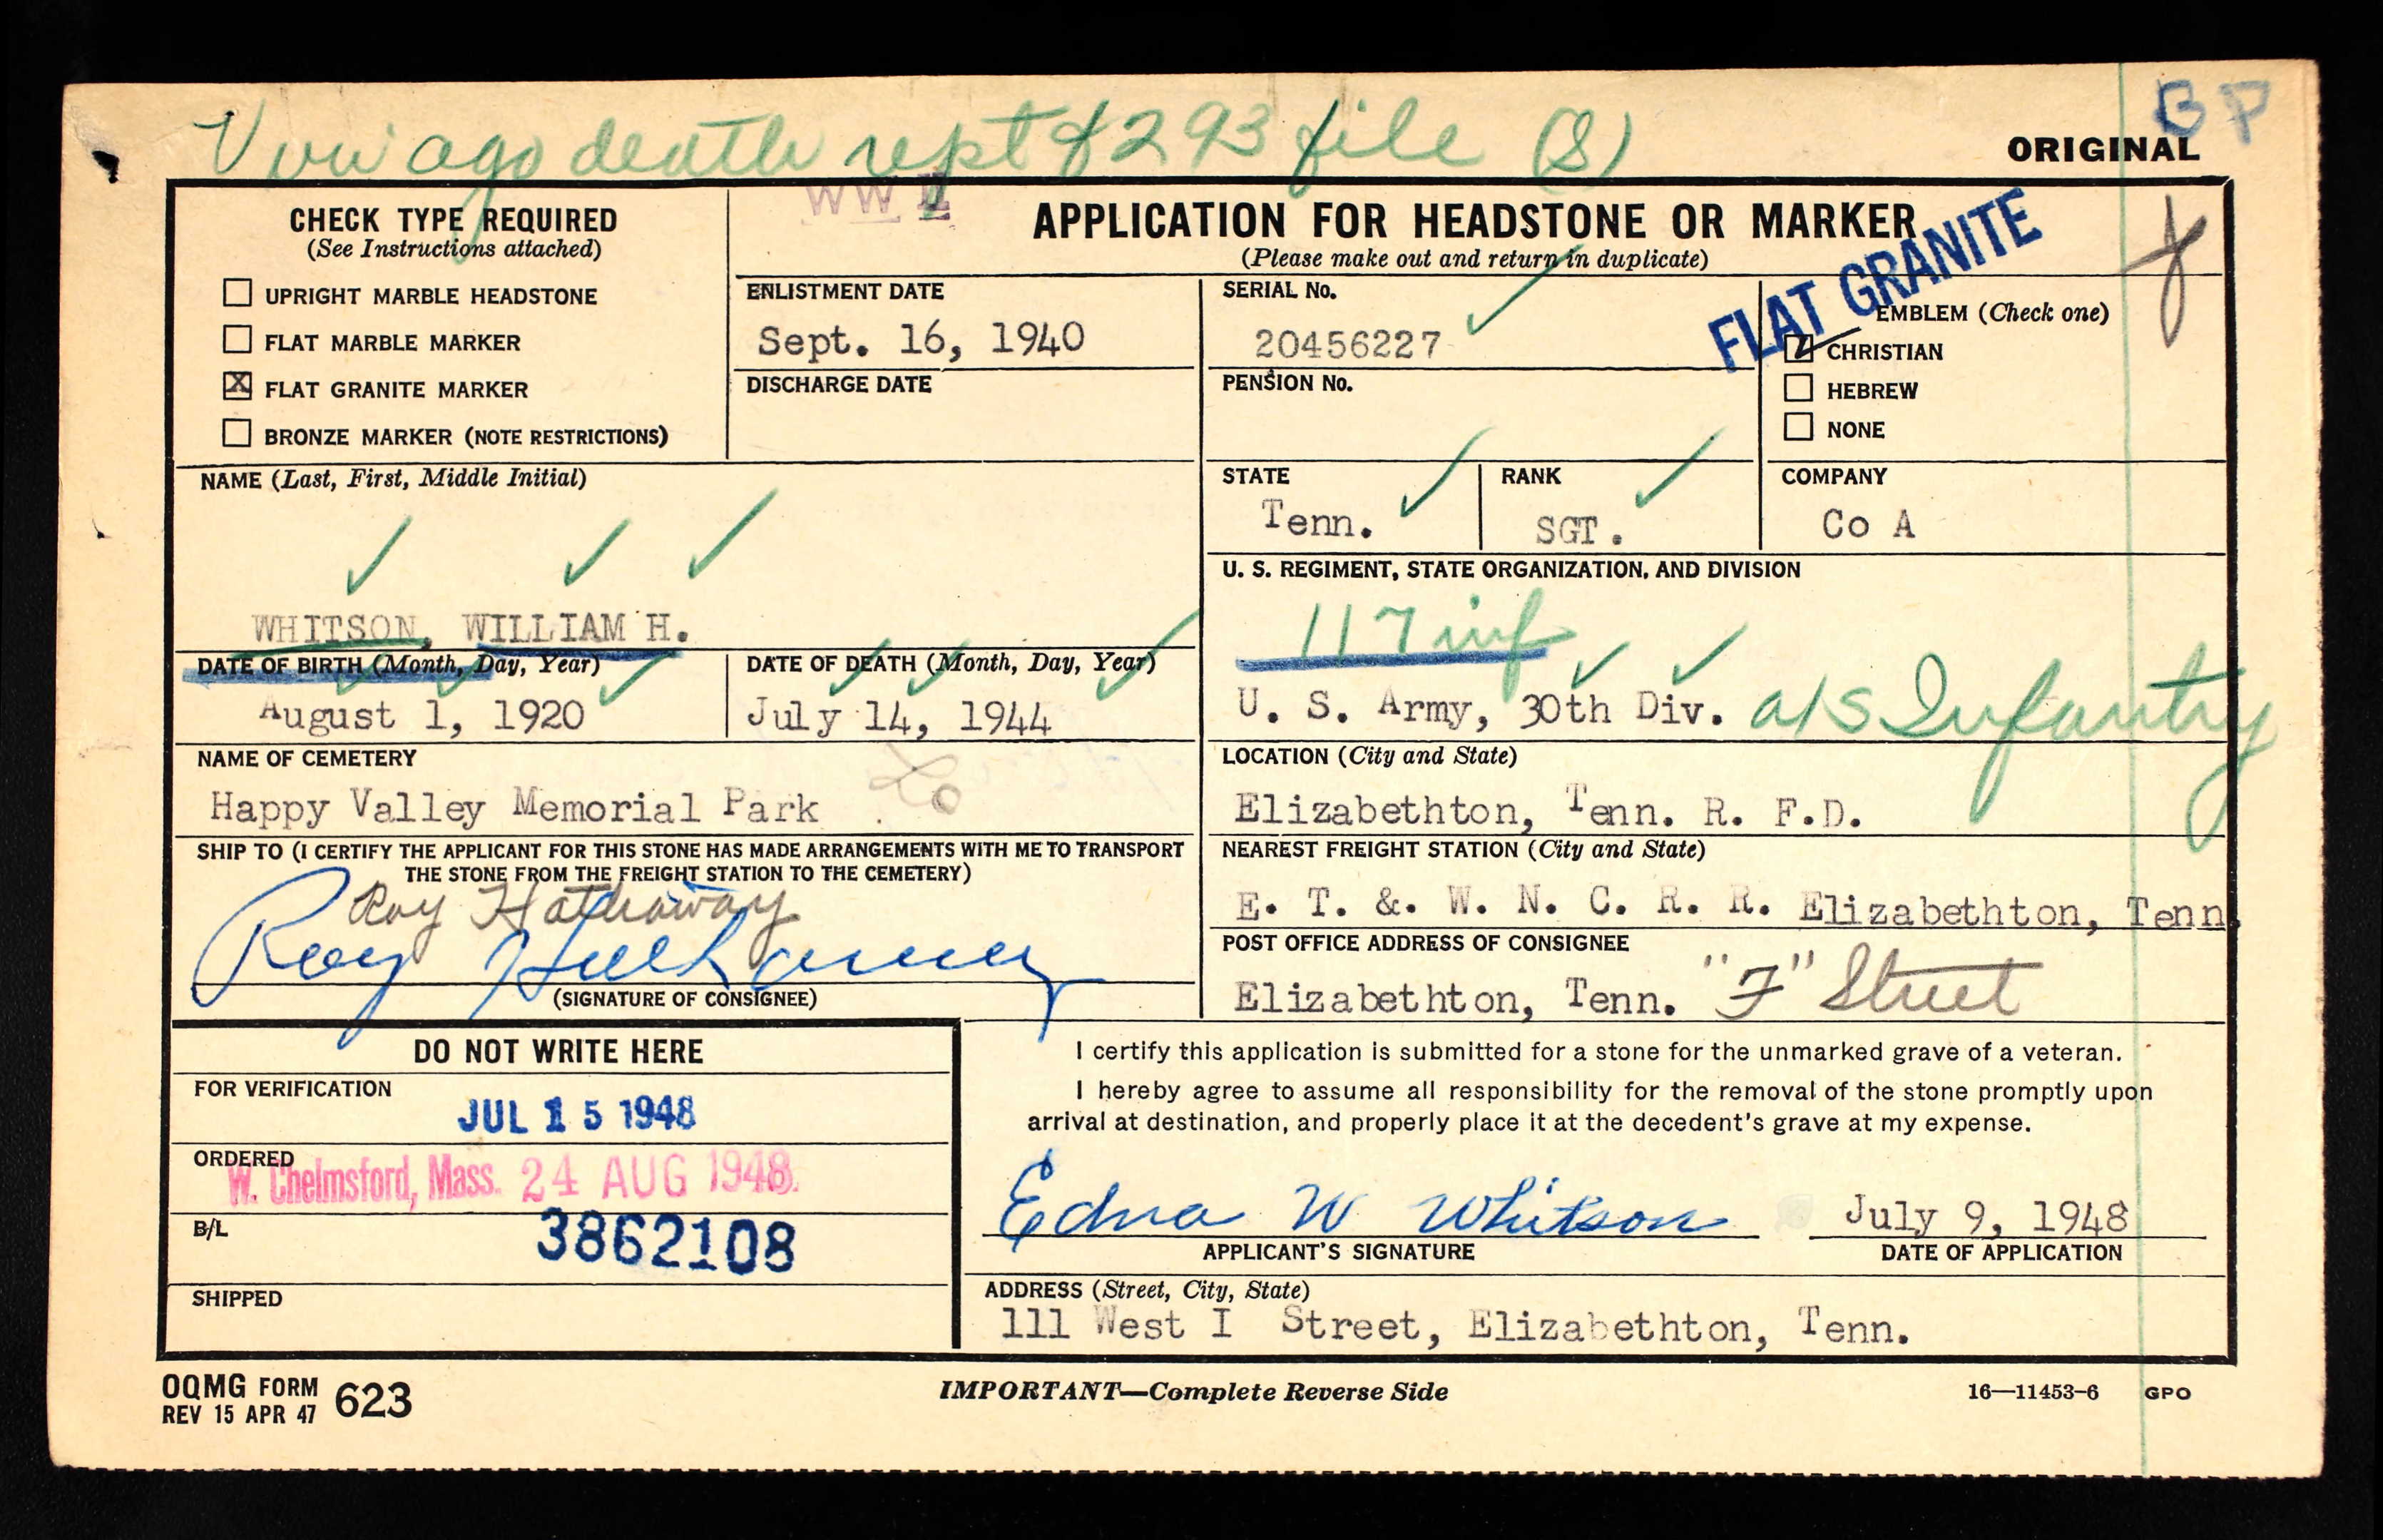 V via ago death rept & 293 file (S)
B P
ORIGINAL
WW II
CHECK TYPE REQUIRED
(See Instructions attached)
UPRIGHT MARBLE HEADSTONE
FLAT MARBLE MARKER
X FLAT GRANITE MARKER
BRONZE MARKER (NOTE RESTRICTIONS)
APPLICATION FOR HEADSTONE OR MARKER
(Please make out and return in duplicate)
FLAT GRANITE
ENLISTMENT DATE
Sept. 16, 1940
DISCHARGE DATE
SERIAL No.
20456227
PENSION No.
EMBLEM (Check one)
CHRISTIAN
HEBREW
NONE
NAME (Last, First, Middle Initial)
WHITSON, WILLIAM H.
STATE
Tenn.
RANK
SGT.
COMPANY
Co A
U. S. REGIMENT, STATE ORGANIZATION, AND DIVISION
117 inf
U. S. Army, 30th Div. a/s Infantry
DATE OF BIRTH (Month, Day, Year)
August 1, 1920
DATE OF DEATH (Month, Day, Year)
July 14, 1944
NAME OF CEMETERY
Happy Valley Memorial Park
LOCATION (City and State)
Elizabethton, Tenn. R. F.D.
SHIP TO (I CERTIFY THE APPLICANT FOR THIS STONE HAS MADE ARRANGEMENTS WITH ME TO TRANSPORT
THE STONE FROM THE FREIGHT STATION TO THE CEMETERY)
Roy Hathaway
Roy Hathaway
(SIGNATURE OF CONSIGNEE)
NEAREST FREIGHT STATION (City and State)
E. T. &. W. N. C. R. R. Elizabethton, Tenn.
POST OFFICE ADDRESS OF CONSIGNEE
Elizabethton, Tenn. "F" Street
DO NOT WRITE HERE
FOR VERIFICATION
JUL 15 1948
ORDERED
W. Chelmsford, Mass. 24 AUG 1948
B/L
3862108
SHIPPED
I certify this application is submitted for a stone for the unmarked grave of a veteran.
I hereby agree to assume all responsibility for the removal of the stone promptly upon
arrival at destination, and properly place it at the decedent's grave at my expense.
Edna W Whitson
July 9, 1948
APPLICANT'S SIGNATURE
DATE OF APPLICATION
ADDRESS (Street, City, State)
111 West I Street, Elizabethton, Tenn.
OQMG FORM 623
REV 15 APR 47
IMPORTANT—Complete Reverse Side
16—11453-6 GPO